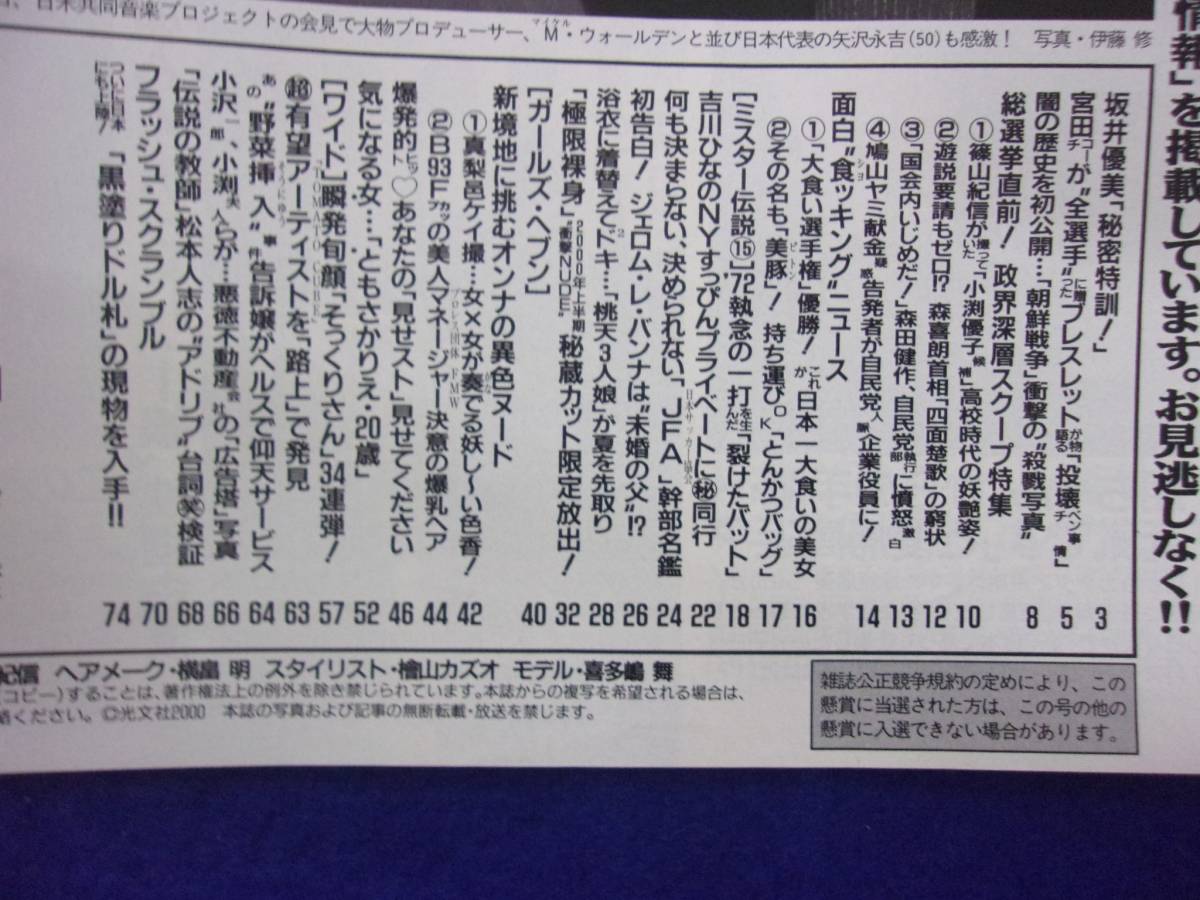 情報」を掲載しています。お見逃しなく!!
日米共同音楽プロジェクトの会見で大物プロデューサー、M・ウォールデンと並び日本代表の矢沢永吉(50)も感激! 写真・伊藤 修
坂井優美「秘密特訓!」 3
宮田コーチが“全選手”に贈ったブレスレットが物語る「投壊ベンチ事情」 5
闇の歴史を初公開…「朝鮮戦争」衝撃の“殺戮写真” 8
総選挙直前! 政界深層スクープ特集
①篠山紀信が撮っていた“小渕優子候補”高校時代の妖艶姿! 10
②遊説要請もゼロ!? 森喜朗首相「四面楚歌」の窮状 12
③「国会内いじめだ!」森田健作、自民党執行部に憤怒激白 13
④鳩山ヤミ献金疑惑告発者が自民党人脈企業役員に! 14
面白“食ッキング”ニュース
①「大食い選手権」優勝! これが日本一大食いの美女 16
②その名も「美豚」! 持ち運びOK「とんかつバッグ」 17
[ミスター伝説⑮]'72執念の一打を生んだ「裂けたバット」 18
吉川ひなのNYすっぴんプライベートに㊙同行 22
何も決まらない、決められない、「JFA」幹部名鑑 24
初告白! ジェロム・レ・バンナは“未婚の父”!? 26
浴衣に着替えてドキ2…「桃天3人娘」が夏を先取り 28
「極限裸身」2000年上半期“衝撃NUDE”秘蔵カット限定放出! 32
[ガールズ・ヘブン] 40
新境地に挑むオンナの異色ヌード
①真梨邑ケイ撮…女×女が奏でる妖し〜い色香! 42
②B93Fカップの美人マネージャープロレス団体FMW決意の爆乳ヘア 44
爆発的ヒット♡あなたの「見せスト」見せてください 46
気になる女…「ともさかりえ・20歳」 52
[ワイド]瞬発旬顔「そっくりさん」34連弾! 57
㊝有望アーティストを「路上」で発見 63
あの“野菜挿入”事件告訴嬢がヘルスで仰天サービス 64
小沢一郎、小渕夫人らが…悪徳不動産会社の「広告塔」写真 66
「伝説の教師」松本人志の“アドリブ”台詞㊗検証 68
フラッシュ・スクランブル 70
ついに日本にも上陸!「黒塗りドル札」の現物を入手!! 74
紀信 ヘアメーク・横畠 明 スタイリスト・檜山カズオ モデル・喜多嶋 舞
(コピー)することは、著作権法上の例外を除き禁じられています。本誌からの複写を希望される場合は、
絡ください。©光文社2000 本誌の写真および記事の無断転載・放送を禁じます。
雑誌公正競争規約の定めにより、この
懸賞に当選された方は、この号の他の
懸賞に入選できない場合があります。